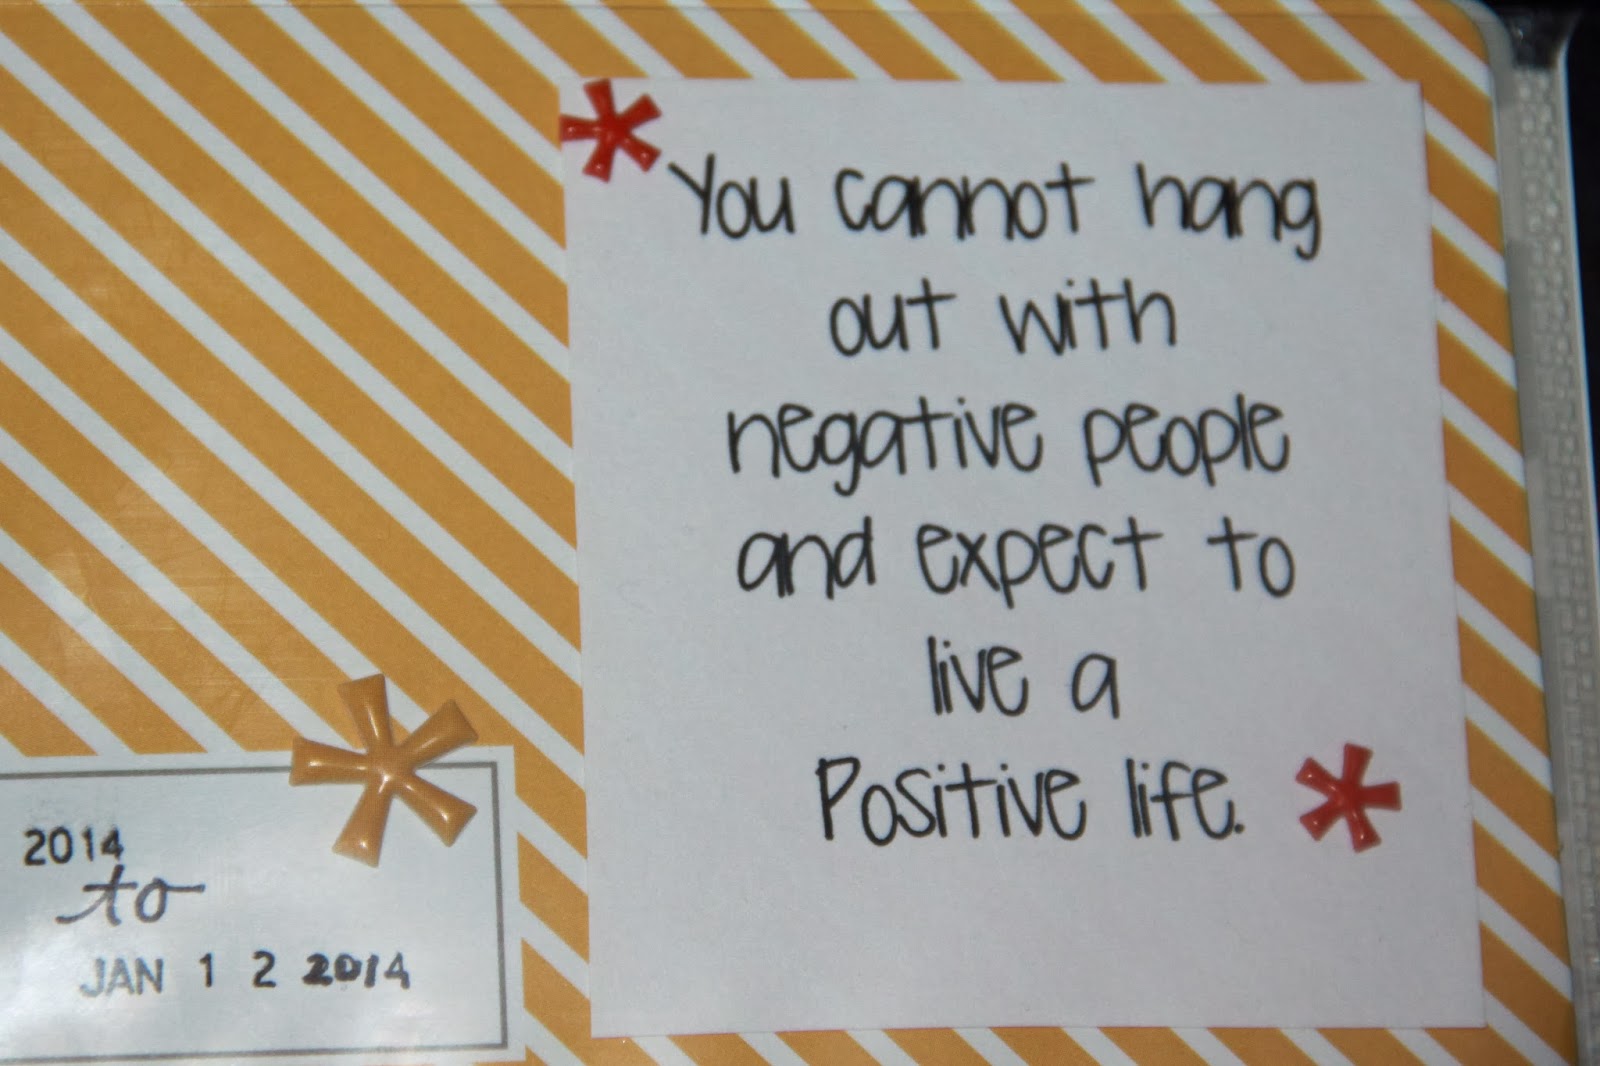 You cannot hang
out with
negative people
and expect to
live a
Positive life.
2014
to
JAN 12 2014